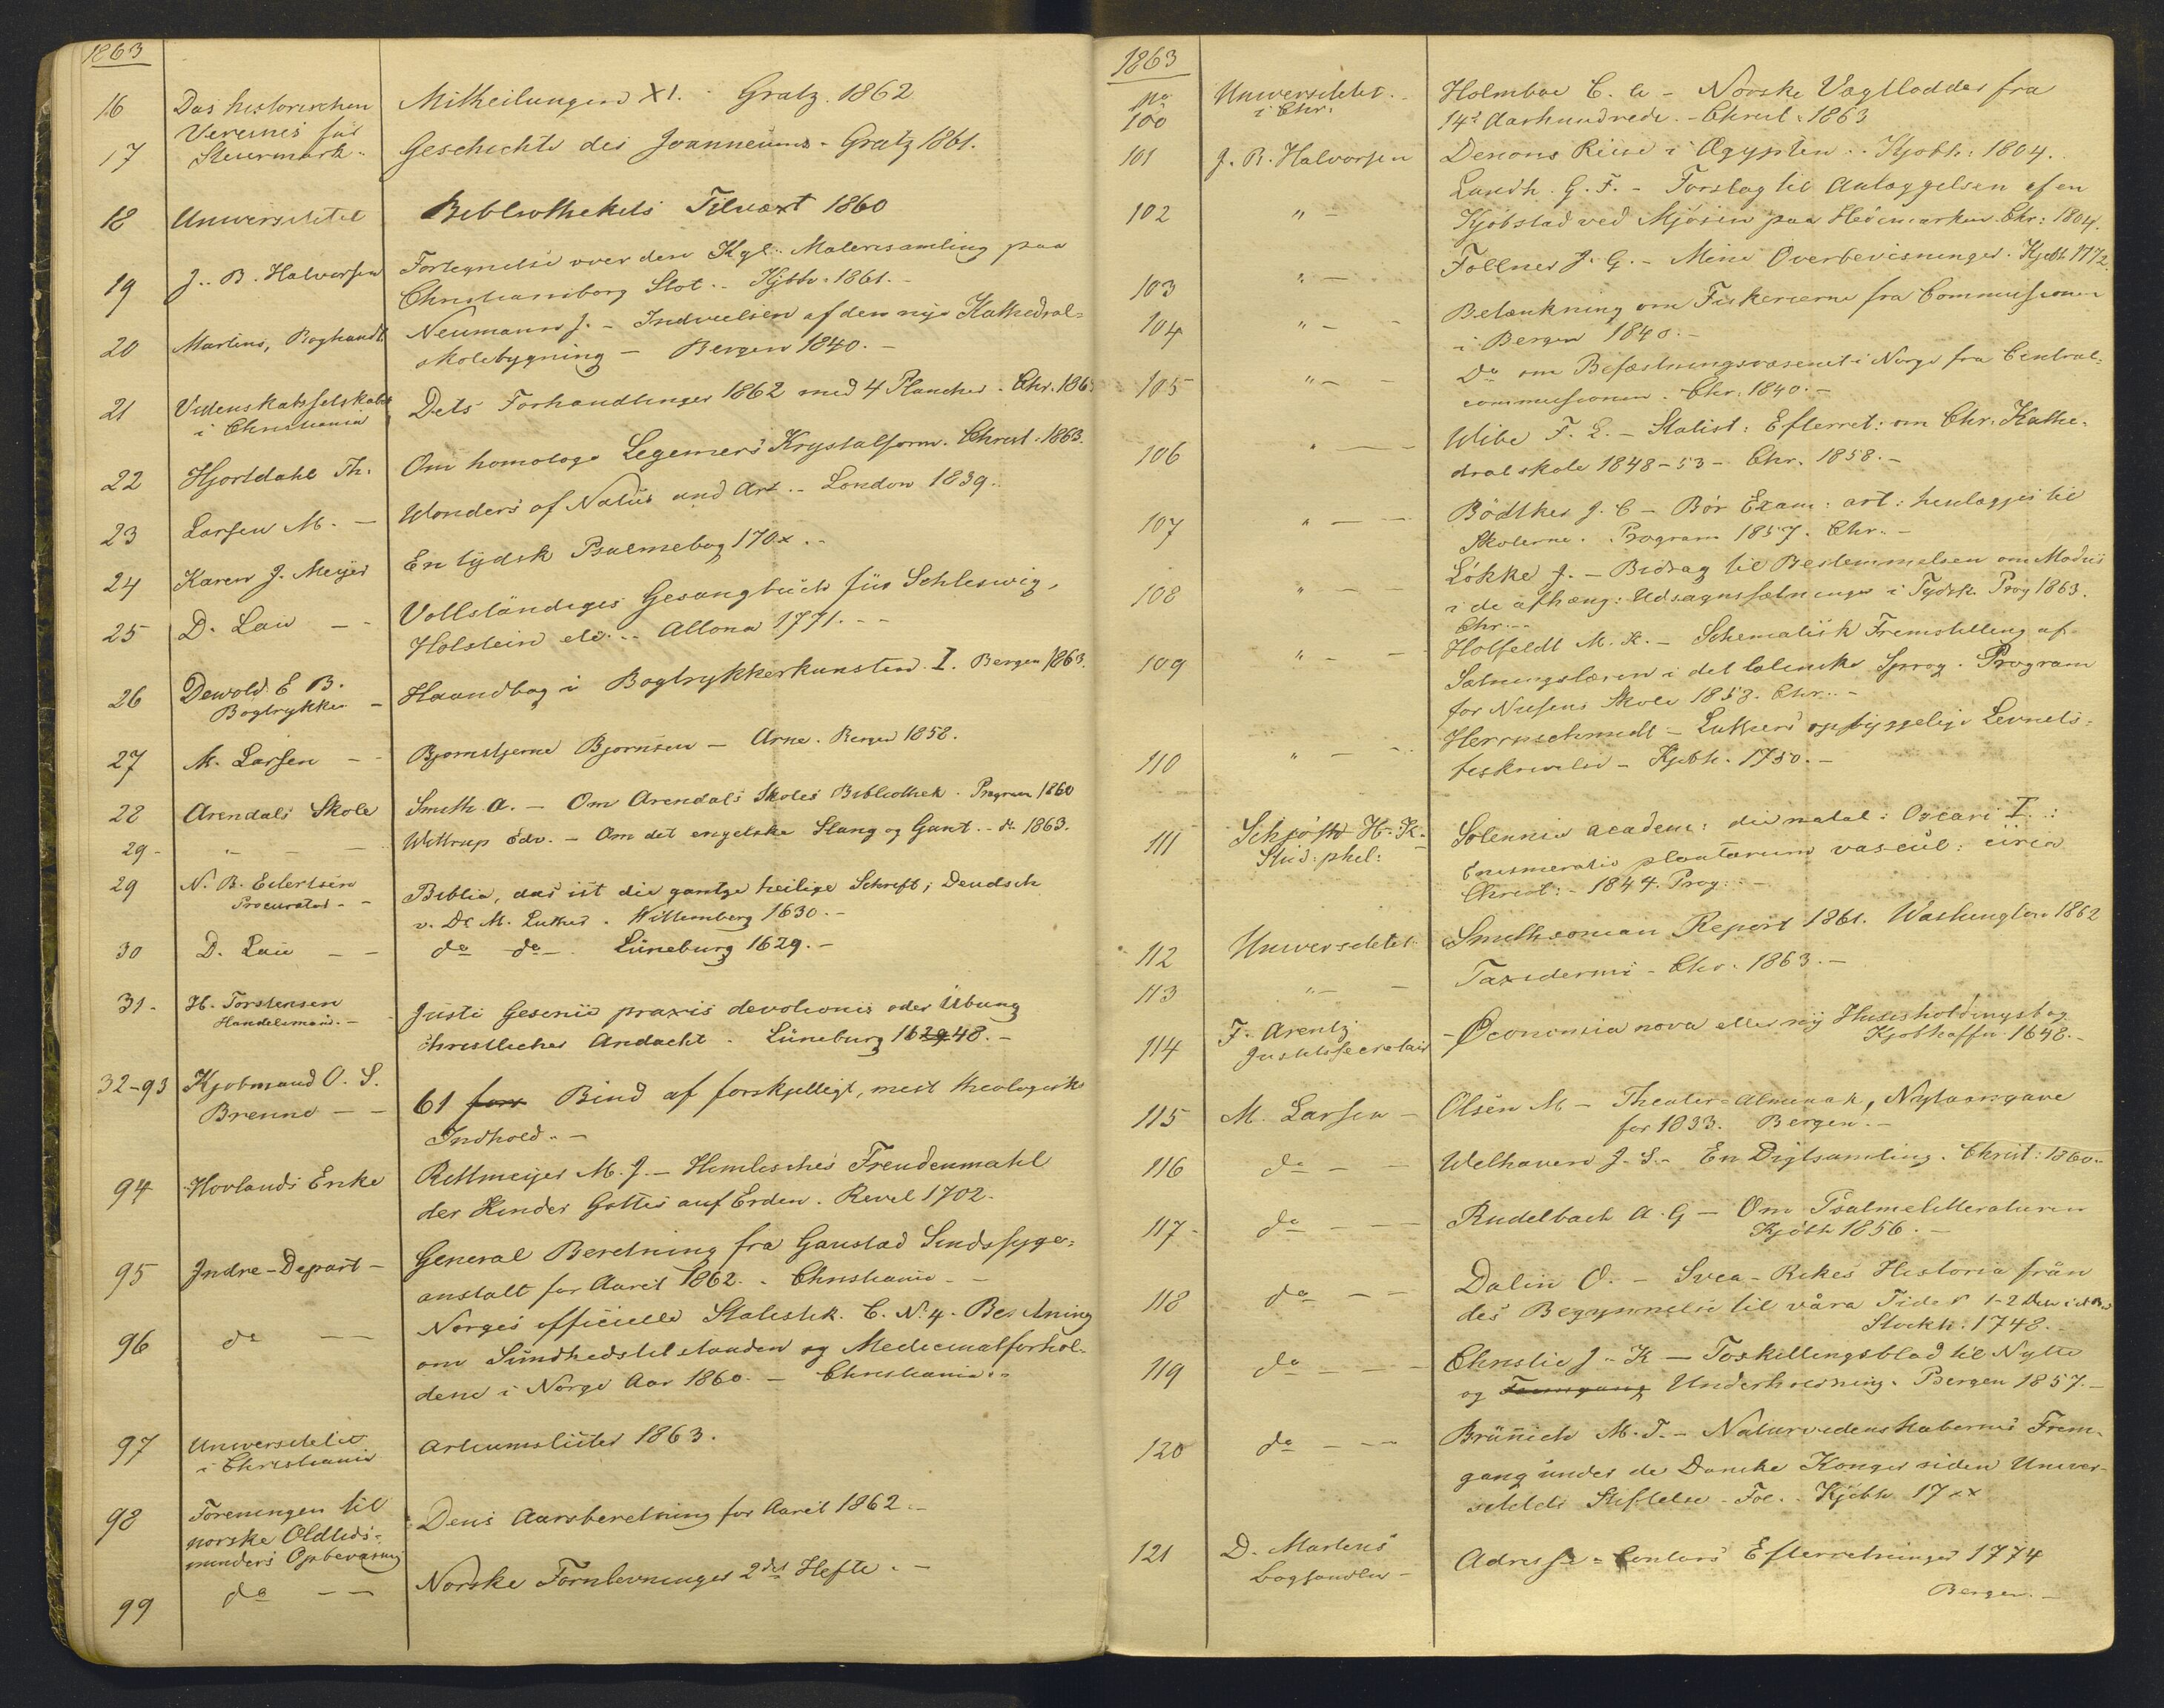 1863
16 Das historischen Mittheilungen XI. - Gratz. 1862
Vereines für
17 Steiermark. Geschichte des Joanneums - Gratz 1861.
18 Universitetet Bibliothekets Tilvæxt 1860
19 J. B. Halvorsen Fortegnelse over den Kgl. Malerisamling paa
Christiansborg Slot. - Kjbhv. 1861. -
20 Martins, Boghandl. Neumann J. - Indvielsen af den nye Kathedral-
skolebygning - Bergen 1840. -
21 Videnskabsselskabet Dets Forhandlinger 1862 med 4 Plancher. Chr. 1863
i Christiania
22 Hjortdahl Th. Om homologe Legemers Krystalform. Christ. 1863.
23 Larsen M. - Wonders of Natur and Art. - London 1839.
24 Karen J. Meyer En tydsk Psalmebog 170x. -
25 D. Lau - - Vollständiges Gesangbuch für Schleswig-
Holstein etc. - Altona 1771. - -
26 Dewold E B. Haandbog i Bogtrykkerkunsten. I. Bergen 1863.
Bogtrykker -
27 M. Larsen - - Bjornstjerne Bjornsen - Arne. Bergen 1858.
28 Arendals Skole Smith A. - Om Arendals Skoles Bibliothek. Program 1860
29 - " - - Wittrup Edv. - Om det engelske Slang og Cant. - do 1863.
29 N. B. Eilertsen Biblia, das ist die gantze heilige Schrift; Deudsch
Procurator - - v. Dr M. Luther. Wittemberg 1630. -
30 D. Lau - - do do - Lüneburg 1629. -
31 - H. Torstensen Justi Gesenii praxis devotionis oder Übung
Handelsmand. - christlicher Andacht. Lüneburg 162948. -
32-93 Kjobmand O. S. 61 fors Bind af forskjelligt, mest theologisk
Brenne - - Indhold. -
94 Hovlands Enke Rittmeyer M. J. - Himlisches Freudenmahl
der Kinder Gottes auf Erden. Revel 1702.
95 Indre-Depart - General Beretning fra Gaustad Sindssyge-
anstalt for Aaret 1862. - Christiania - -
96 do - - Norges officielle Statistik. C. No. 4. Beretning
om Sundhedstilstanden og Medicinalforhol-
dene i Norge Aar 1860. - Christiania. -
97 Universitetet Artiumslister 1863.
i Christiania
98 Foreningen til Dens Aarsberetning for Aaret 1862. -
norske Oldtids-
minders Opbevaring
99 do - - Norske Fornlevninger 2det Hefte. -
1863
No 100 Universitetet Holmboe C. A - Norske Vægtlodder fra
i Chr. 14de Aarhundrede. - Christ. 1863
101 J. B. Halvorsen Denons Reise i Ægypten. - Kjobh: 1804.
102 " - Lundh. G. F. - Forslag til Anlæggelsen af en
Kjöbstad ved Mjösen paa Hedemarken. Chr: 1804.
103 " - Tollner J. G. - Mine Overbevisninger. Kjøbh 1772.
104 " - - Betænkning om Fiskerierne fra Commissionen
i Bergen 1840. -
105 " - - Do om Befæstningsvæsenet i Norge fra Central-
commissionen. Chr. 1840. -
106 " - - Wibe F. L. - Statist: Efterret: om Chr. Kathe-
dralskole 1848-53 - Chr. 1858. -
107 " - - Bödtker J. C - Bör Exam: art: henlægges til
Skolerne. Program 1857. Chr. -
108 " - - Lökke J. - Bidrag til Bestemmelsen om Modus
i de afhæng: Udsagnssætninger i Tydsk. Prog 1863.
Chr. -
109 " - - Holfeldt M. K. - Schematisk Fremstilling af
Sætningslæren i det latinske Sprog. Program
for Nissens Skole 1853. Chr. -
110 " - - Herrnschmidt - Luthers opbyggelige Levnets-
beskrivelse - Kjøbh. 1750. -
111 Schjøtt H. K. - Solennia academ: die natal: Oscari I. :
Stud. phil: Enumeratio plantarum vascul: circa
Christ: - 1844. Prog: -
112 Universitetet Smithsonian Report 1861. Washington 1862
113 " - - Taxidermi - Chr. 1863. -
114 F. Arentz - Oeconomia nova eller ny Huusholdningsbog
Justitssecretair Kjobhaffn 1648. -
115 M. Larsen - Olsen M - Theater-Almenak, Nytaarsgave
for 1833. Bergen. -
116 do - - Welhaven J. S. - En Digtsamling. Christ: 1860.
117 - do - - Rudelbach A. G - Om Psalmelitteraturen
Kjöbh 1856. -
118 do - - Dalin O. - Svea-Rikes Historia från
des Begynnelse til våra Tider 1-2 Del i et Bd
Stockh. 1748.
119 do - - Christie J. K - Toskillingsblad til Nytte
og Fremgang Underholdning. Bergen 1857. -
120 do - - Brünich M. T. - Naturvidenskabernes Frem-
gang under de Danske Konger siden Univer-
sitetets Stiftelse - Fol. - Kjöbh 17xx
121 D. Martens Adresse-Contors Efterretninger 1774
Boghandler - Bergen. -